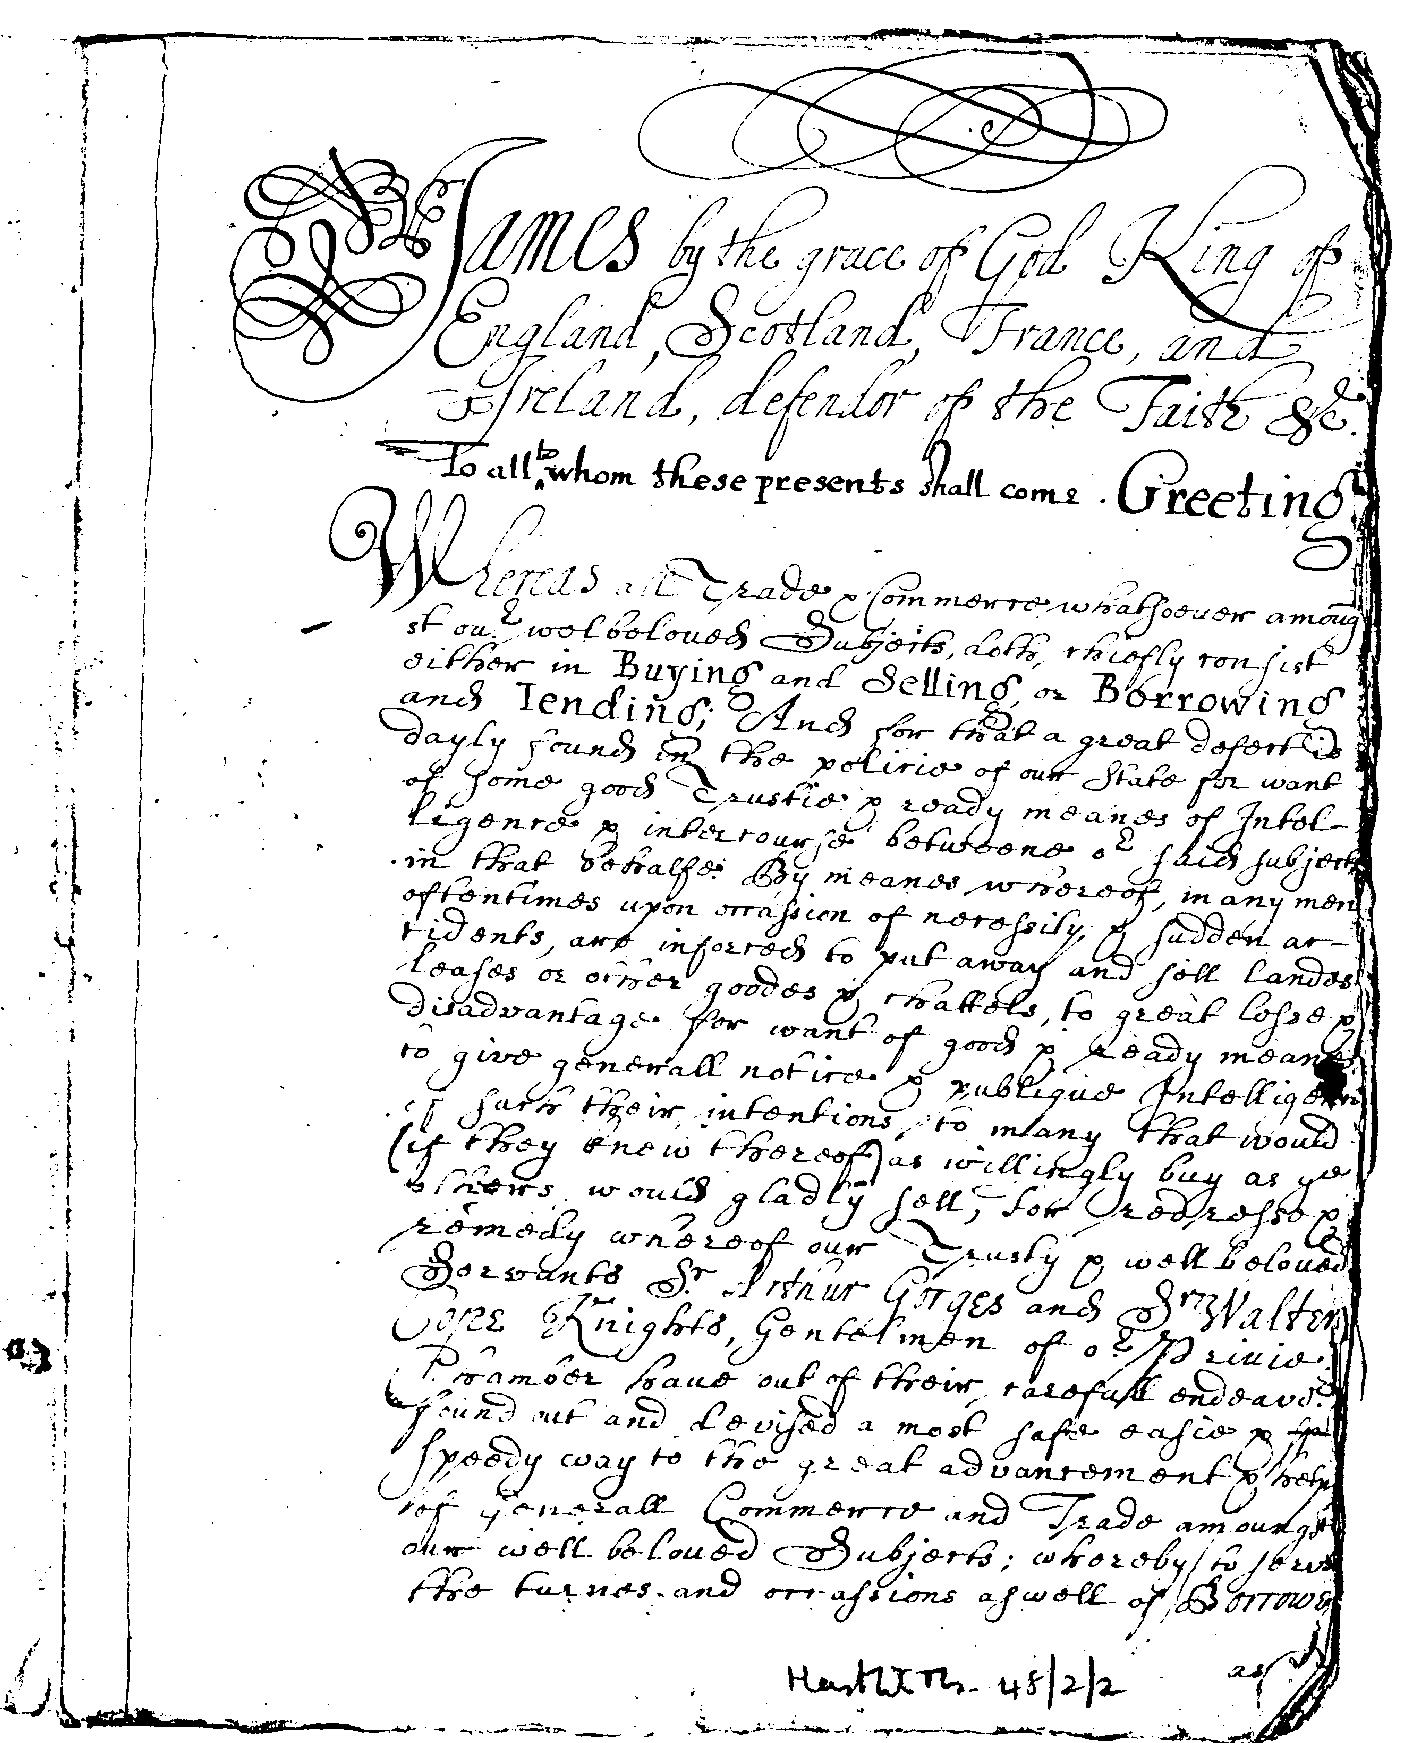 James by the grace of God King of
England, Scotland, France, and
Ireland, defendor of the Faith &c.
To all to whom these presents shall come. Greeting
Whereas all Trade & Commerce whatsoever amoung
st our welbeloved Subjects, doth, chiefly consist
either in Buying and Selling, or Borrowing
and Lending; And for that a great defect is
dayly found in the policie of our State for want
of some good Trustie & ready meanes of Intel-
ligence & intercourse betweene or said subjects
in that behalfe. By meanes whereof, many men
oftentimes upon occassion of necessity & sudden ac-
cidents, are inforced to put away and sell landes
leases or other goodes & chattels, to great losse &
disadvantage for want of good & ready meanes
to give generall notice & publique Intelligence
of such their intentions, to many that would
(if they knew thereof) as willingly buy as ye
others would gladly sell; for redresse &
remedy whereof our Trusty & well beloved
Servants Sr. Arthur Gorges and Sr Walter
Cope Knights, Gentelmen of or Privie
Chamber have out of their carefull endeavor
found out and devised a most safe easie &
speedy way to the great advancement & help
of generall Commerce and Trade amoungst
our well beloved Subjects; whereby to serve
the turnes and occassions aswell of Borrowers
as
48/2/2